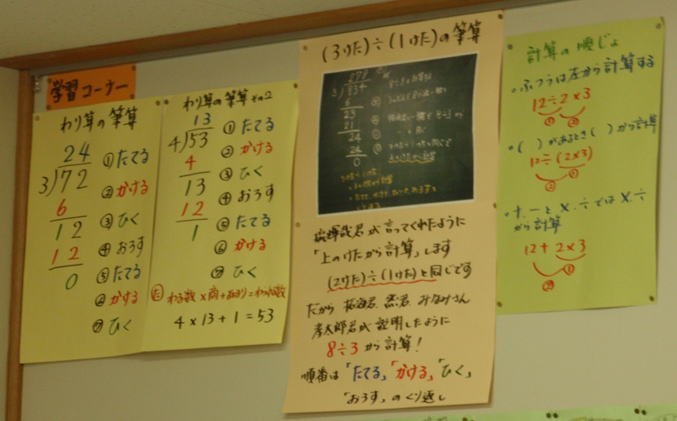 学習コーナー
わり算の筆算
24
3)72
6
12
12
0
①たてる
②かける
③ひく
④おろす
⑤たてる
⑥かける
⑦ひく
わり算の筆算その2
13
4)53
4
13
12
1
①たてる
②かける
③ひく
④おろす
⑤たてる
⑥かける
⑦ひく
わる数×商+あまり=わられる数
4×13+1=53
(3けた)÷(1けた)の筆算
278
3)834
6
23
21
24
24
0
君が言ってくれたように
「上のけたから計算」します
(2けた)÷(1けた)と同じです
だから
孝太郎君が説明したように
8÷3から計算!
順番は「たてる」「かける」「ひく」
「おろす」のくり返し
計算の順じょ
・ふつうは左から計算する
12÷2×3
① ②
・( )があるとき( )から計算
12÷(2×3)
② ①
・+、-と×、÷では×、÷
から計算
12+2×3
② ①